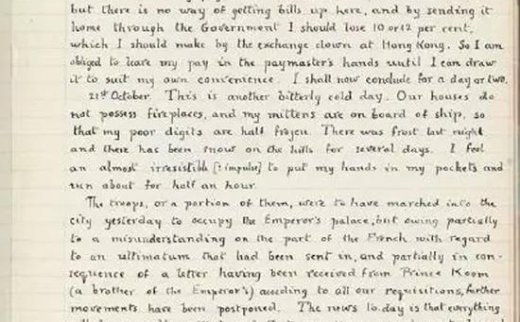 but there is no way of getting bills up here, and by sending it
home through the Government I should lose 10 or 12 per cent.
which I should make by the exchange down at Hong Kong. So I am
obliged to leave my pay in the paymaster's hands until I can draw
it to suit my own convenience. I shall now conclude for a day or two.
21st October. This is another bitterly cold day. Our houses do
not possess fireplaces, and my mittens are on board of ship, so
that my poor digits are half frozen. There was frost last night
and there has been snow on the hills for several days. I feel
an almost irresistible [? impulse] to put my hands in my pockets and
run about for half an hour.
The troops, or a portion of them, were to have marched into the
city yesterday to occupy the Emperor's palace, but owing partially
to a misunderstanding on the part of the French with regard
to an ultimatum that had been sent in, and partially in con-
sequence of a letter having been received from Prince Koom
(a brother of the Emperor's) acceding to all our requisitions, further
movements have been postponed. The news to-day is that everything